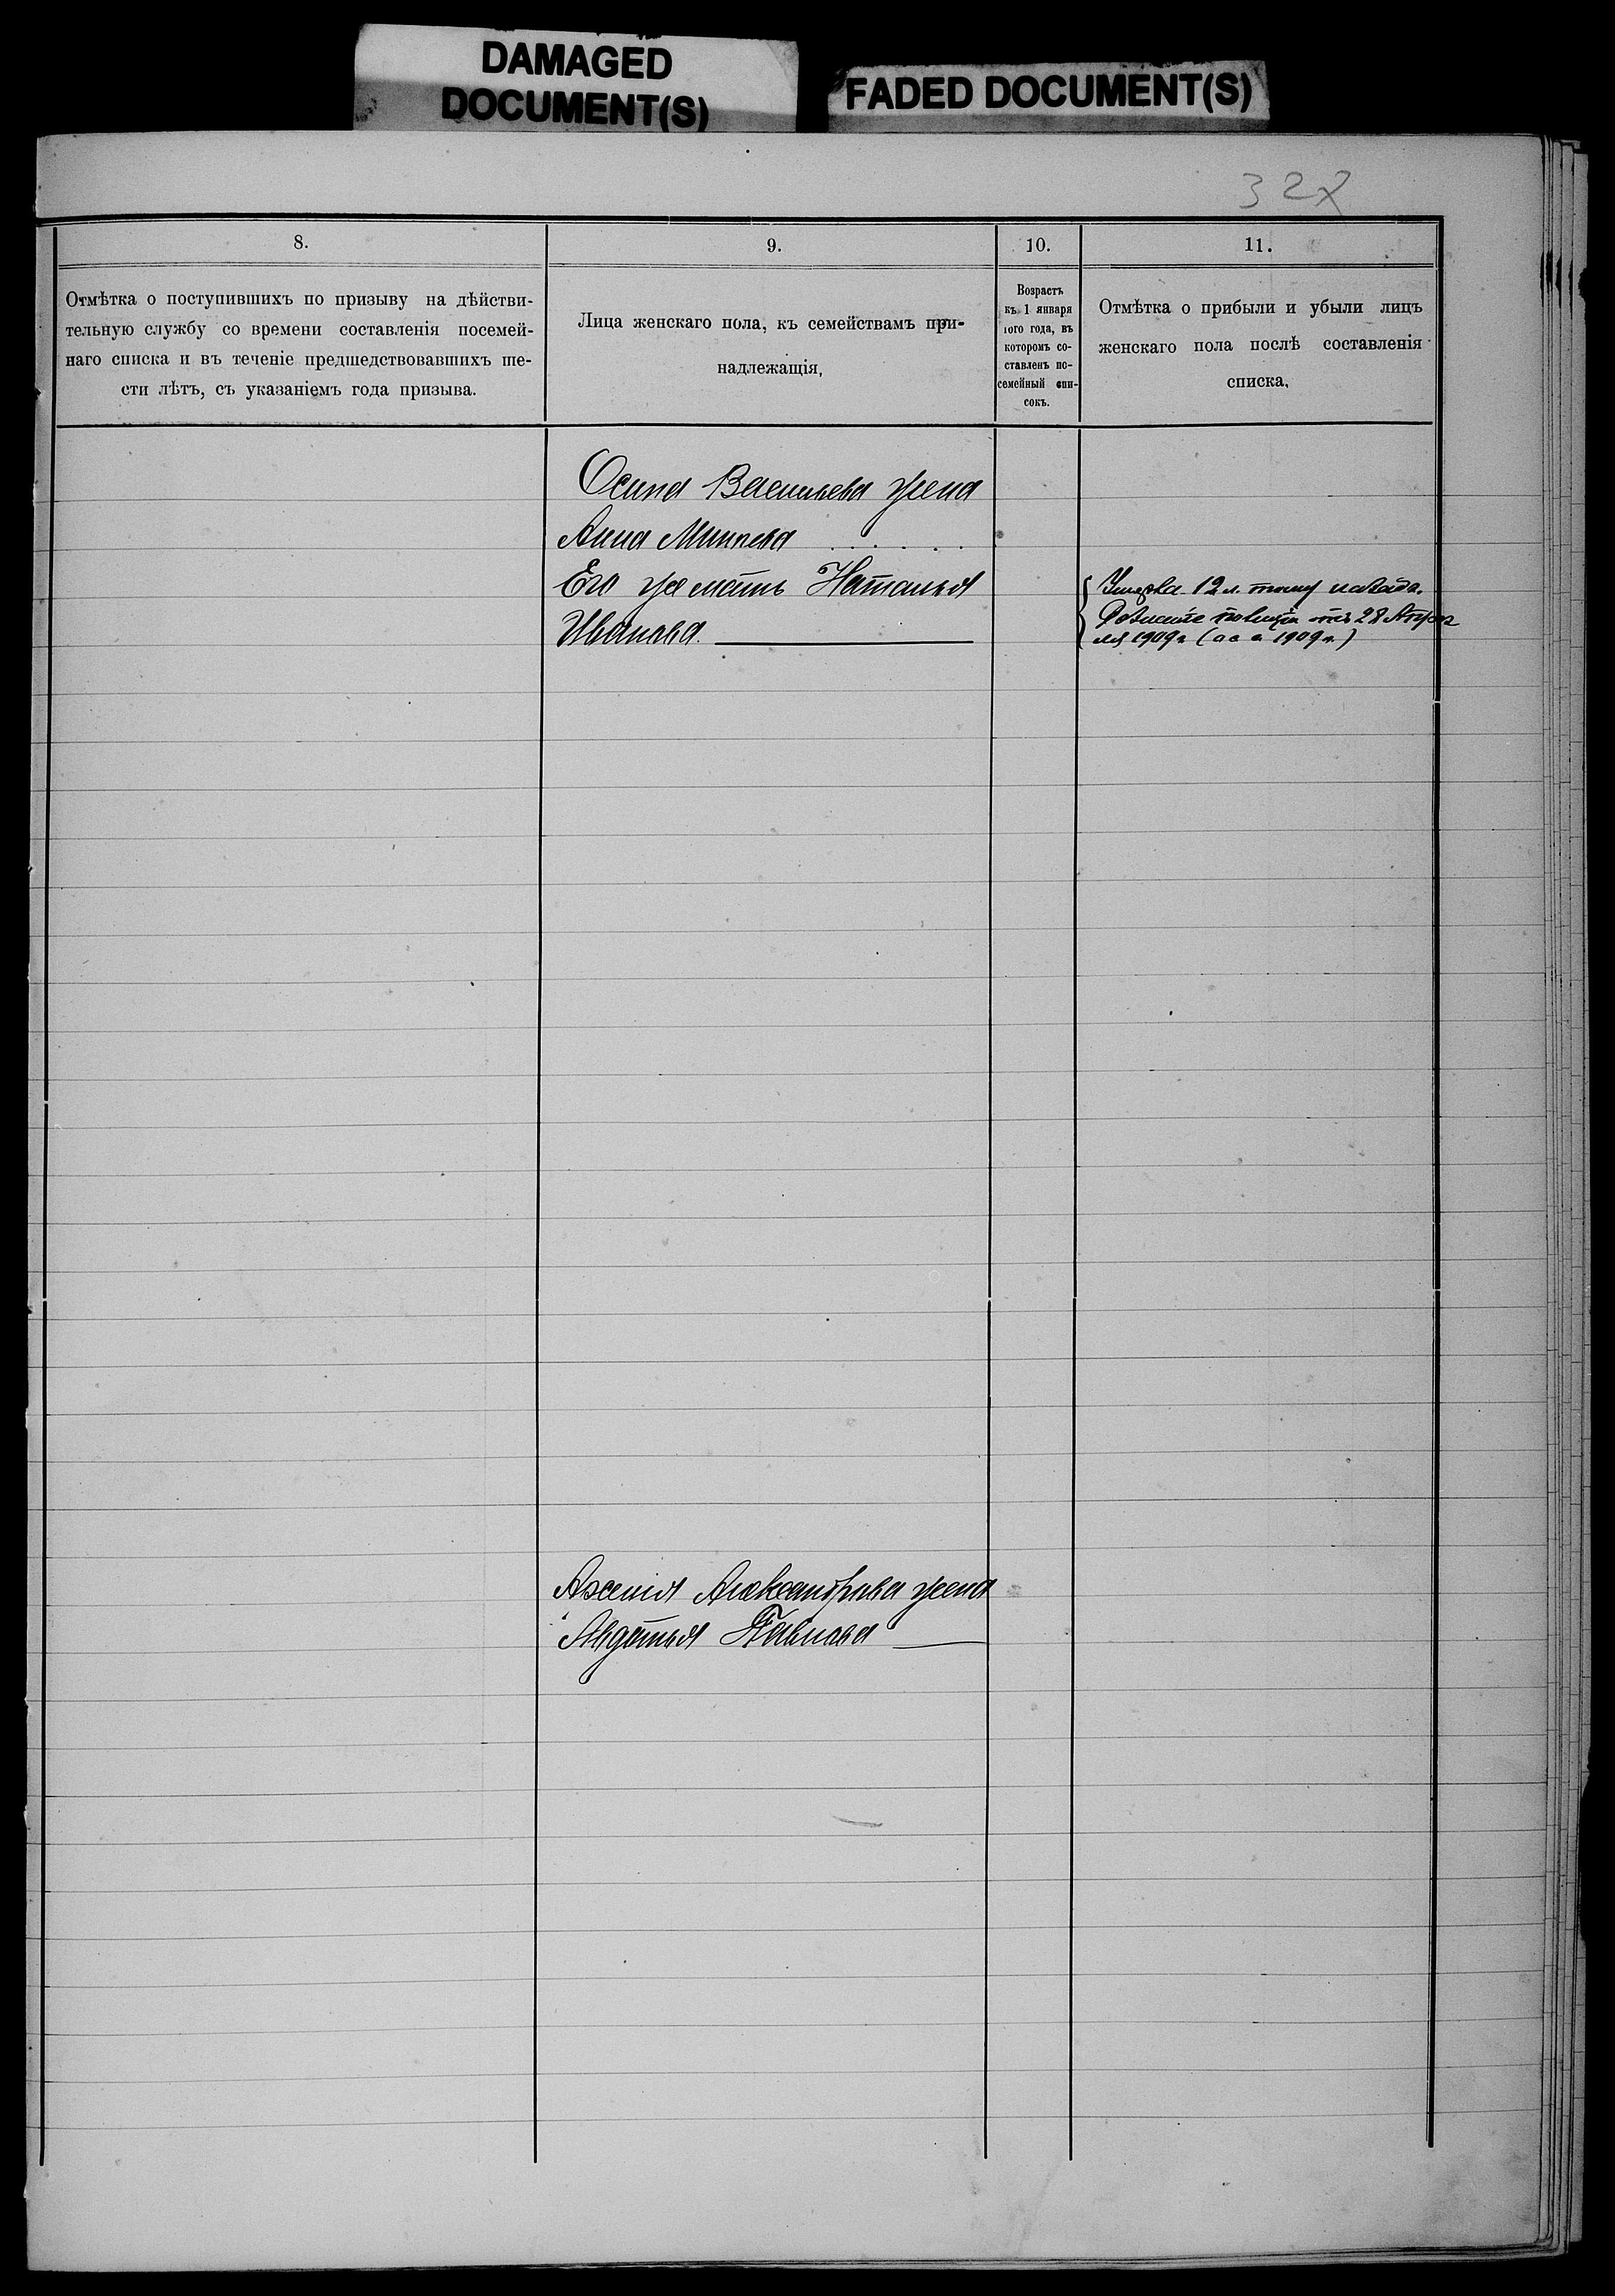 DAMAGED
DOCUMENT(S)
FADED DOCUMENT(S)
8.
Отмѣтка о поступившихъ по призыву на дѣйстви-
тельную службу со времени составленія посемей-
наго списка и въ теченіе предшедствовавшихъ ше-
сти лѣтъ, съ указаніемъ года призыва.
9.
Лица женскаго пола, къ семействамъ при-
надлежащія,
10.
Возрастъ
къ 1 января
того года, въ
которомъ со-
ставленъ по-
семейный спи-
сокъ.
11.
Отмѣтка о прибыли и убыли лицъ
женскаго пола послѣ составленія
списка,
Осипа Васильева жена
Анна
Его же мать Наталья
Иванова.
Умерла 12 л. тому назадъ.
28 Апре
ля 1909 г. 1909 г.)
Александрова жена
Авдотья Павлова